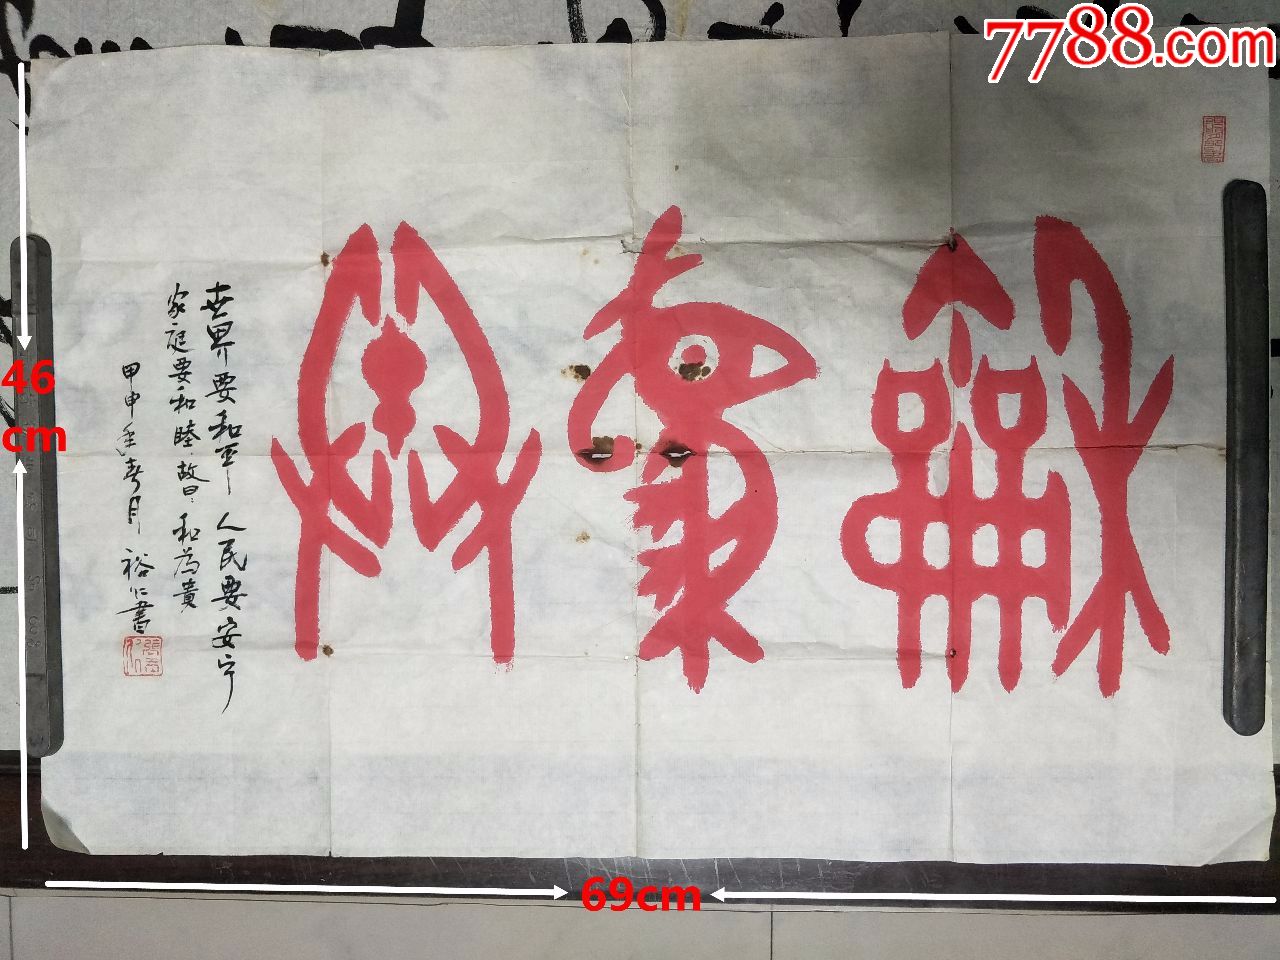 7788.com
龢為貴
世界要和平 人民要安宁
家庭要和睦 故曰 和為貴
甲申年春月 裕仁書
46
cm
69cm